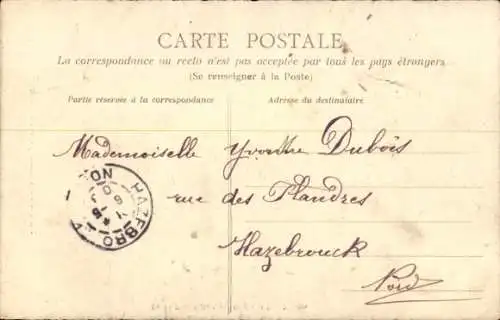 CARTE POSTALE
La correspondance au recto n'est pas acceptée par tous les pays étrangers
(Se renseigner à la Poste)
Partie réservée à la correspondance
Adresse du destinataire
Mademoiselle Yvonne Dubois
rue des Flandres
Hazebrouck
Nord
HAZEBRO
NO